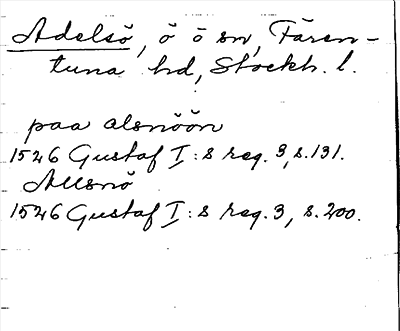 Adelsö, ö o sn, Faren-
tuna hd, Stockh. l.
paa alsnöön
1526 Gustaf I:s reg. 3, s. 131.
Allsnö
1526 Gustaf I:s reg. 3, s. 200.